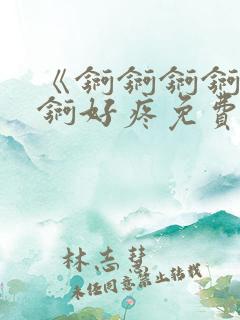 《锕锕锕锕
锕好疼免費
林志慧
未经同意禁止转载